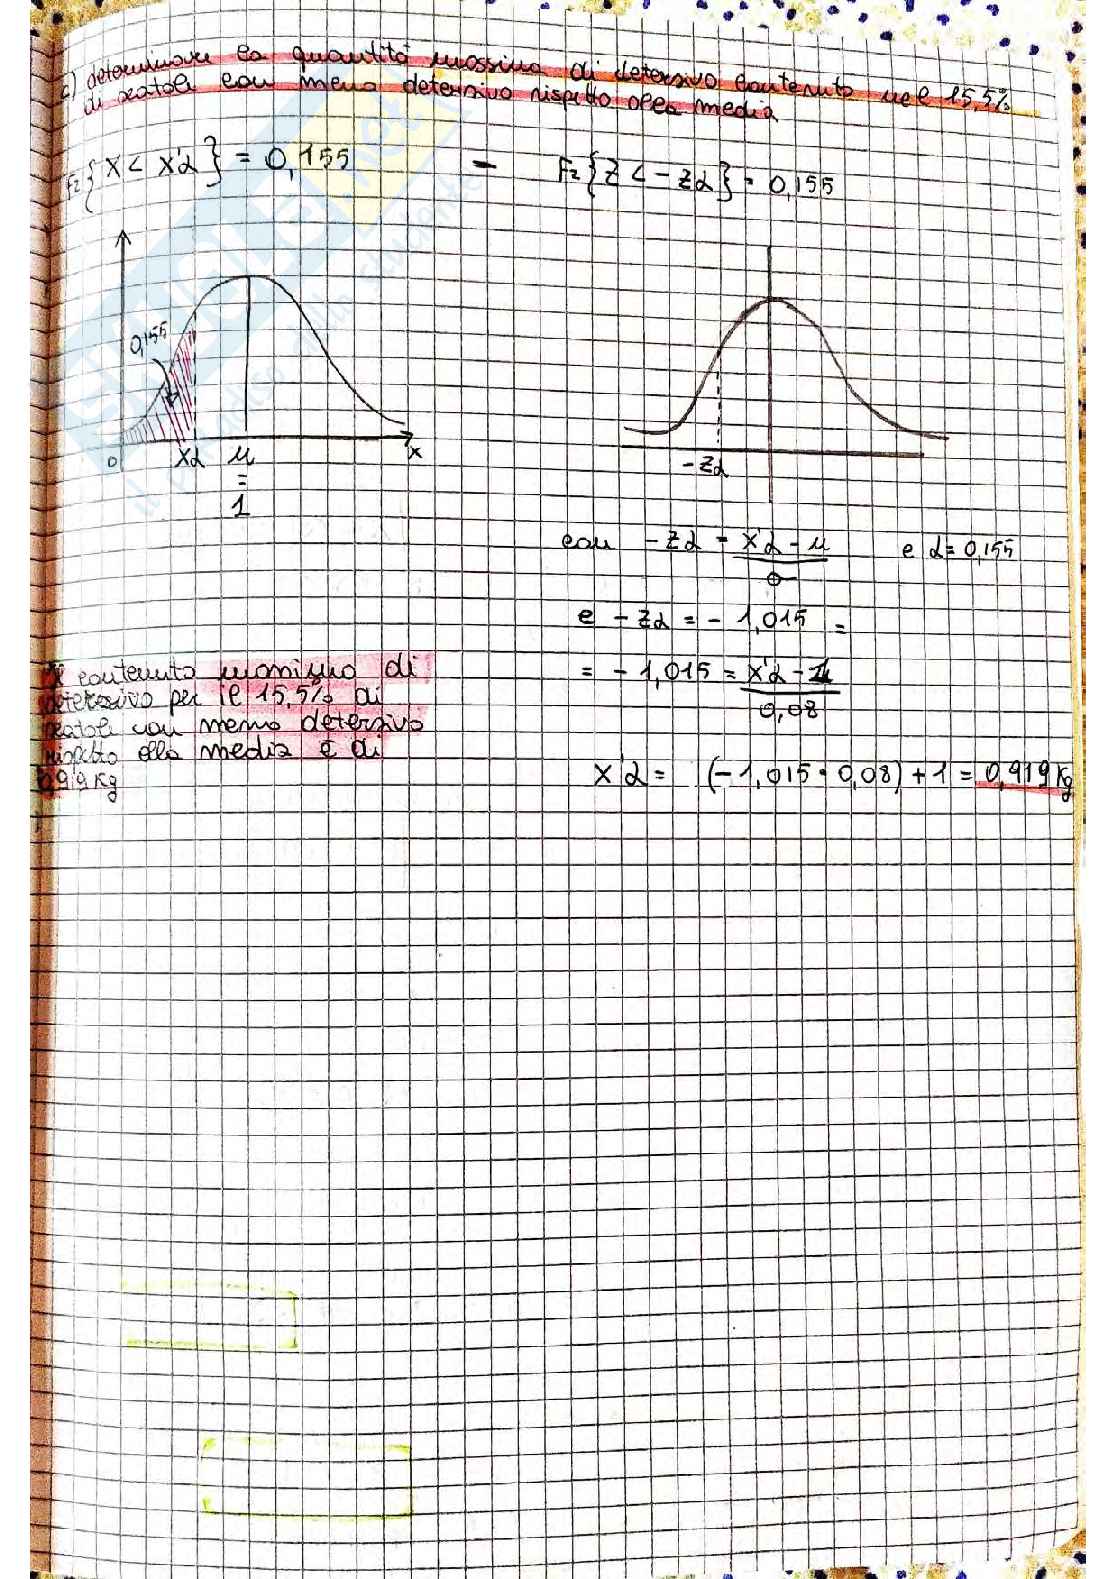 c) determinare la quantità massima di detersivo contenuto nel 15,5%
di scatole con meno detersivo rispetto alla media
Fz{X < x'α} = 0,155 = Fz{Z < -zα} = 0,155
0,155
0 xα μ x
=
1
-zα
con -zα = x'α - μ / σ e α = 0,155
e -zα = - 1,015 =
= - 1,015 = x'α - 1 / 0,08
x'α = (-1,015 · 0,08) + 1 = 0,919 kg
Il contenuto massimo di
detersivo per il 15,5% di
scatole con meno detersivo
rispetto alla media è di